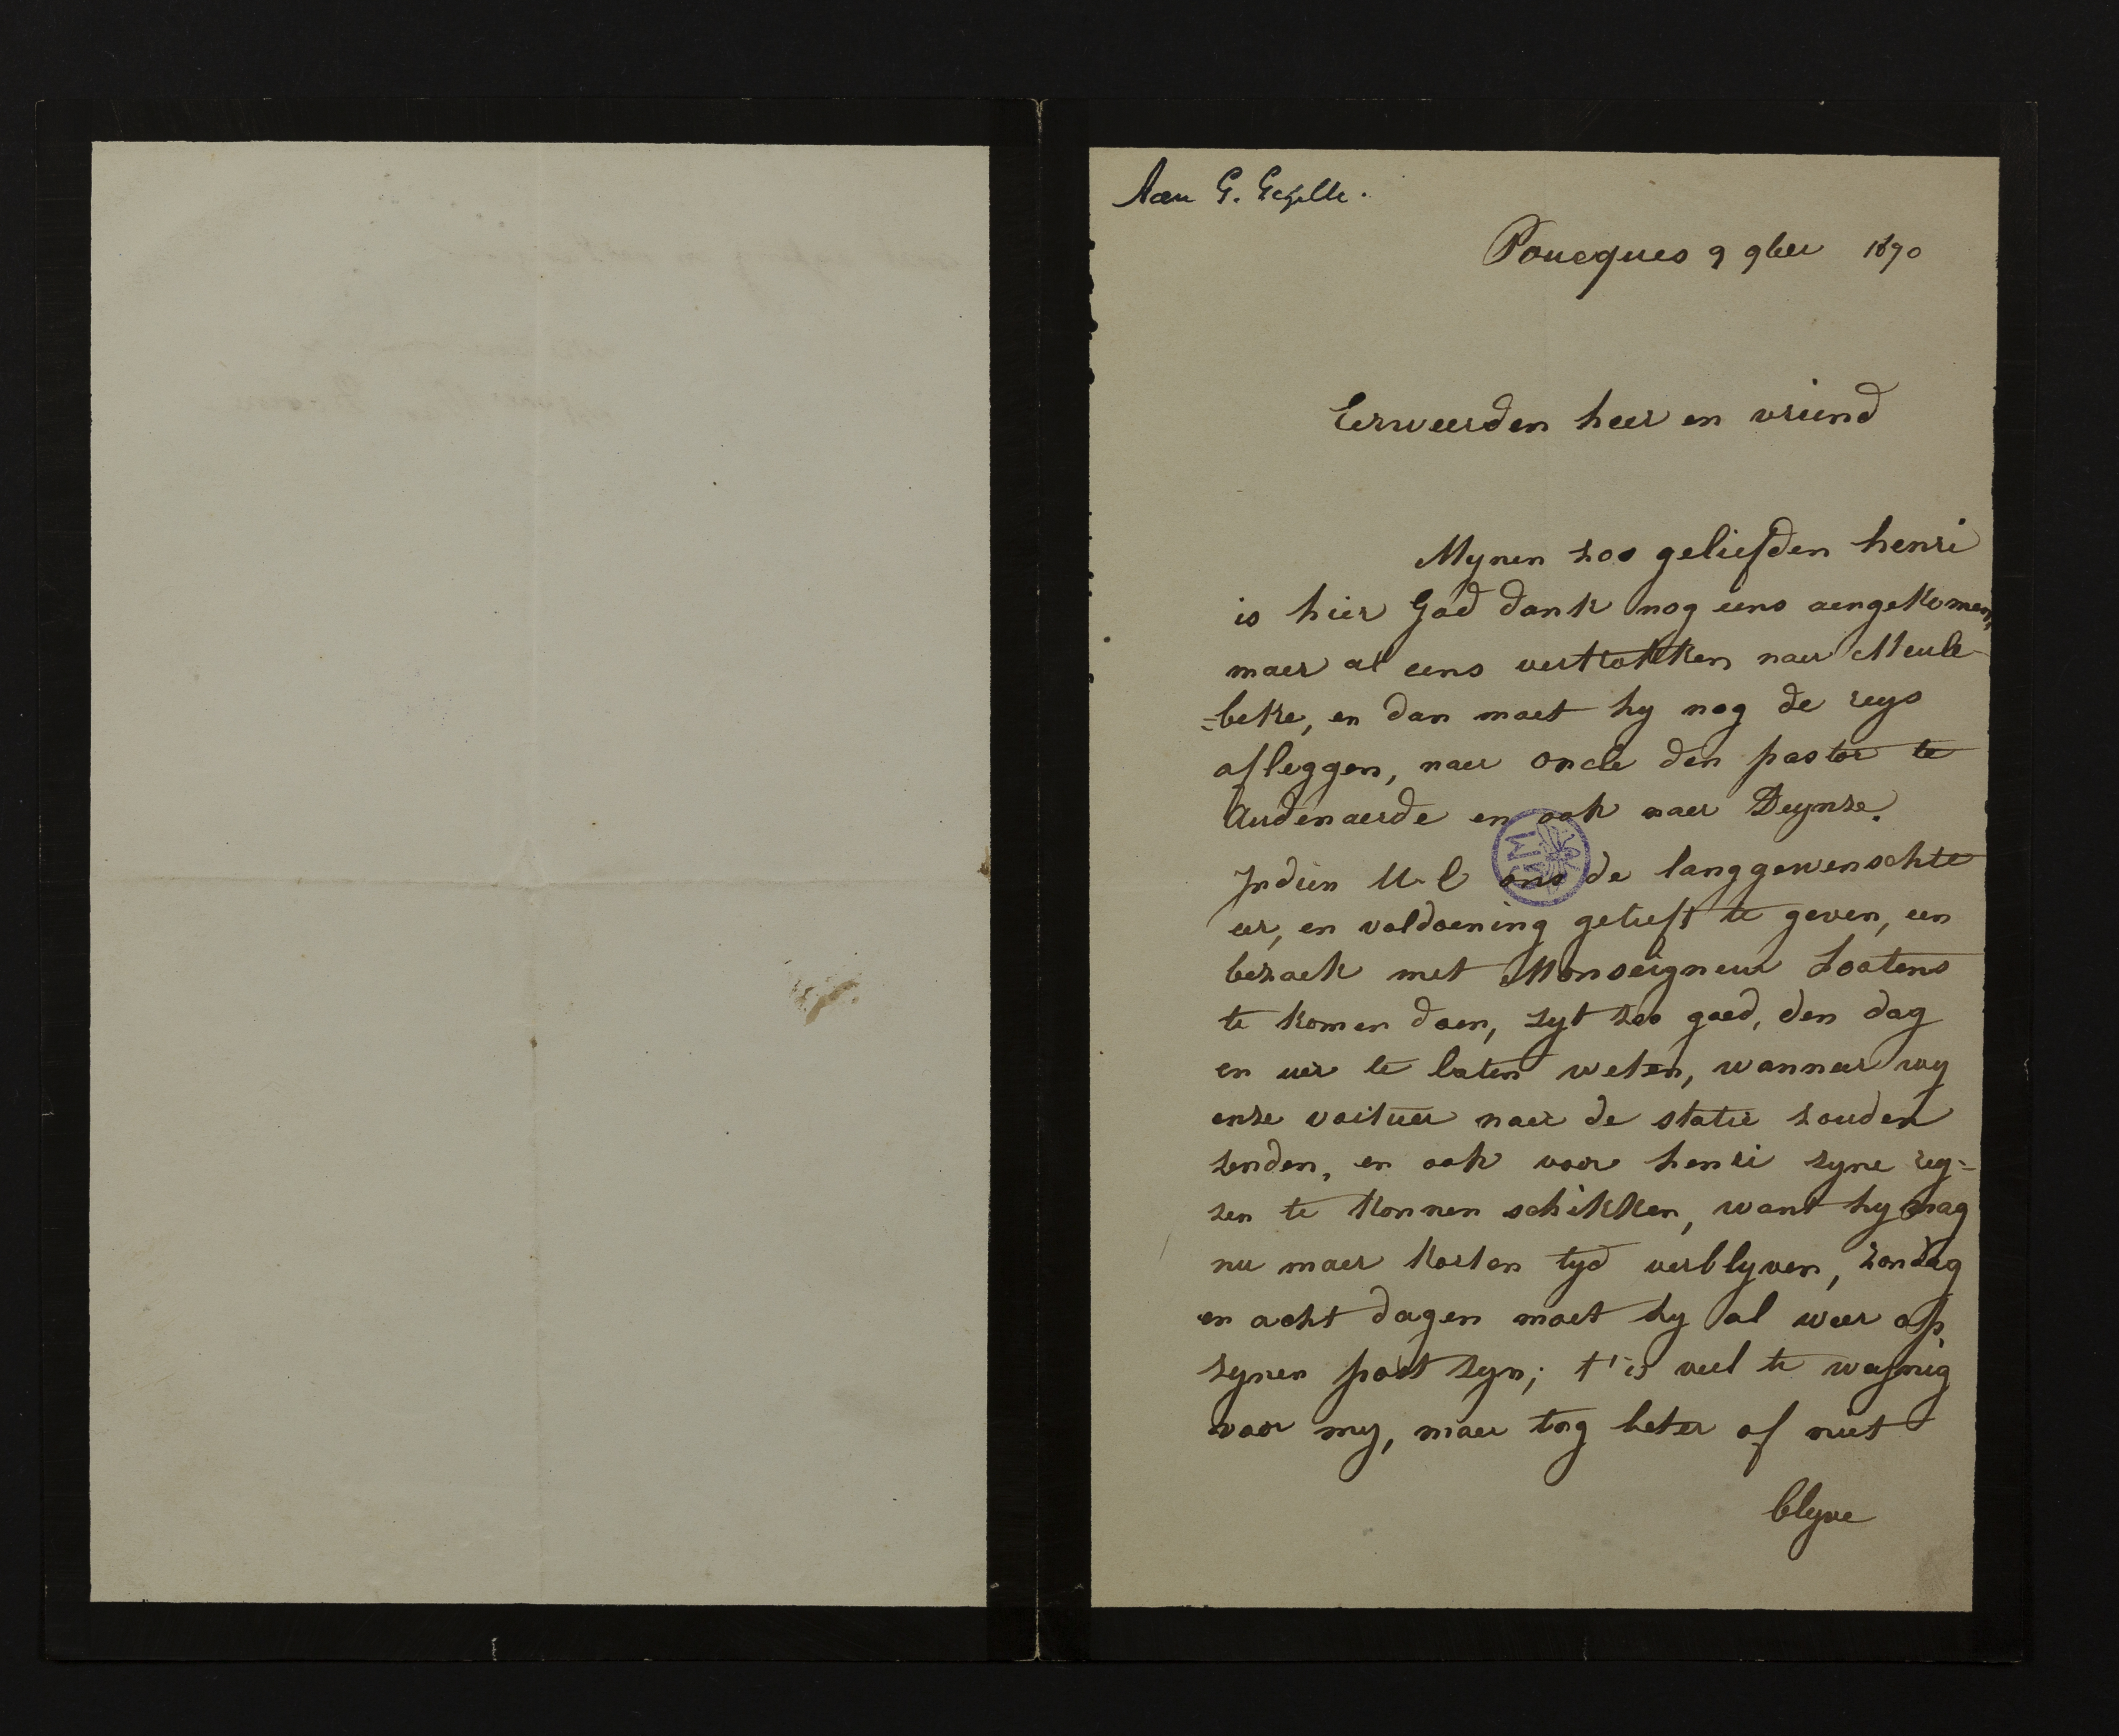 Aan G. Gezelle.
Poucques 9 9ber 1890
Eerweerden heer en vriend
Mynen zoo geliefden henri
is hier God dank nog eens aengekomen,
maer al eens vertrokken naer Meule-
=beke, en dan moet hy nog de reys
afleggen, naer oncle den pastor te
Audenaerde en ook naer Deynze.
Indien U-E ons de langgewenschte
eer, en voldoening gelieft te geven, een
bezoek met Monseigneur Lootens
te komen doen, zyt zoo goed, den dag
en uer te laten weten, wanneer wy
onze voituer naer de statie zouden
zenden, en ook voor henri zyne rey=
zen te konnen schikken, want hy mag
nu maer korten tyd verblyven, zondag
en acht dagen moet hy al weer op
zynen post zyn; t'is veel te wynig
voor my, maer tog beter of niet
blyve
GM